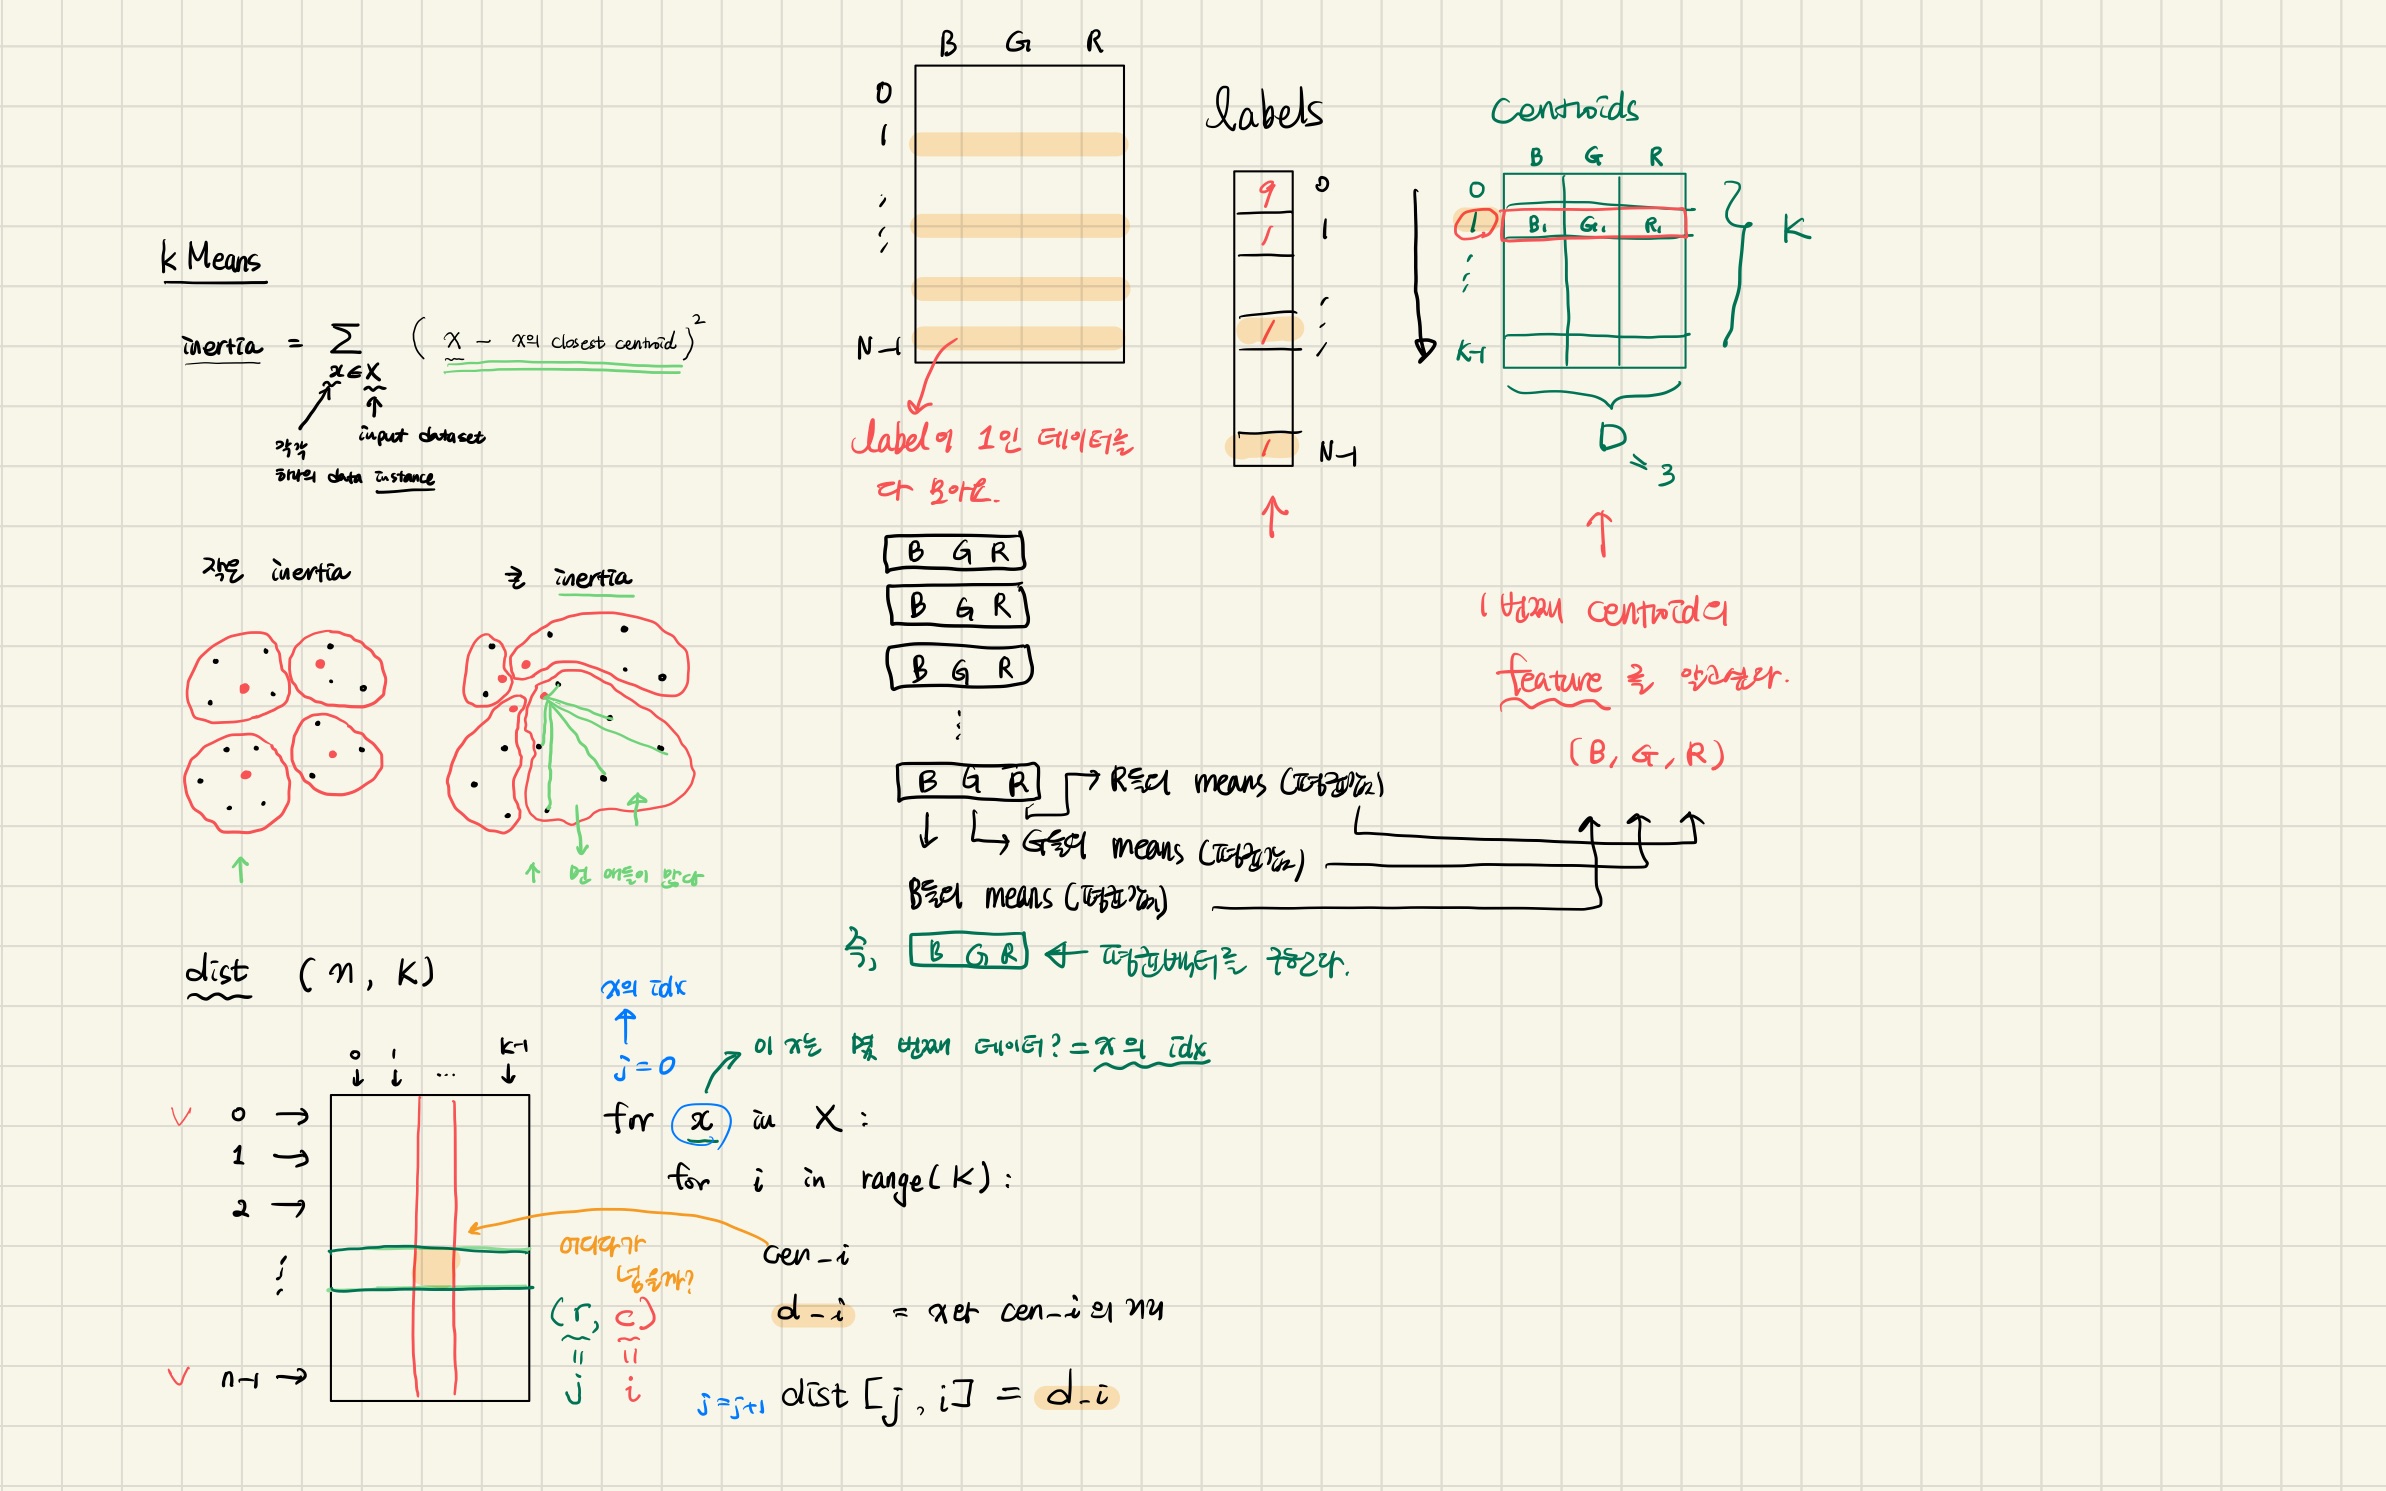 k Means
inertia = Σ ( x - x의 closest centroid )²
x ∈ X
각각
하나의 data instance
input dataset
작은 inertia
큰 inertia
먼 애들이 많다
dist (n, K)
0 1 ... K-1
0 →
1 →
2 →
n-1 →
x의 idx
j = 0
이 x는 몇 번째 데이터? = x의 idx
for x in X :
for i in range(K) :
cen_i
어디다가
넣을까?
(r, c)
= =
j i
d_i = x와 cen_i의 거리
j=j+1 dist [j, i] = d_i
B G R
0
1
N-1
label이 1인 데이터를
다 모아요.
B G R
B G R
B G R
B G R
R들의 means (평균값)
G들의 means (평균값)
B들의 means (평균값)
즉, B G R ← 평균벡터를 구한다.
labels
9 0
1 1
1
1 N-1
Centroids
B G R
0
1 B₁ G₁ R₁
K-1
K
D
= 3
1번째 centroid의
feature를 알고싶다.
(B, G, R)